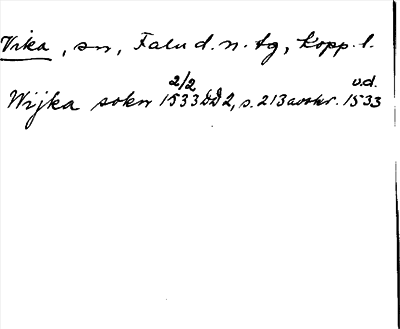 Vika, sn, Falu d. n. tg, Kopp. l.
2/2 u.d.
Wijka sokn 1533 DD 2, s. 213 avskr. 1533